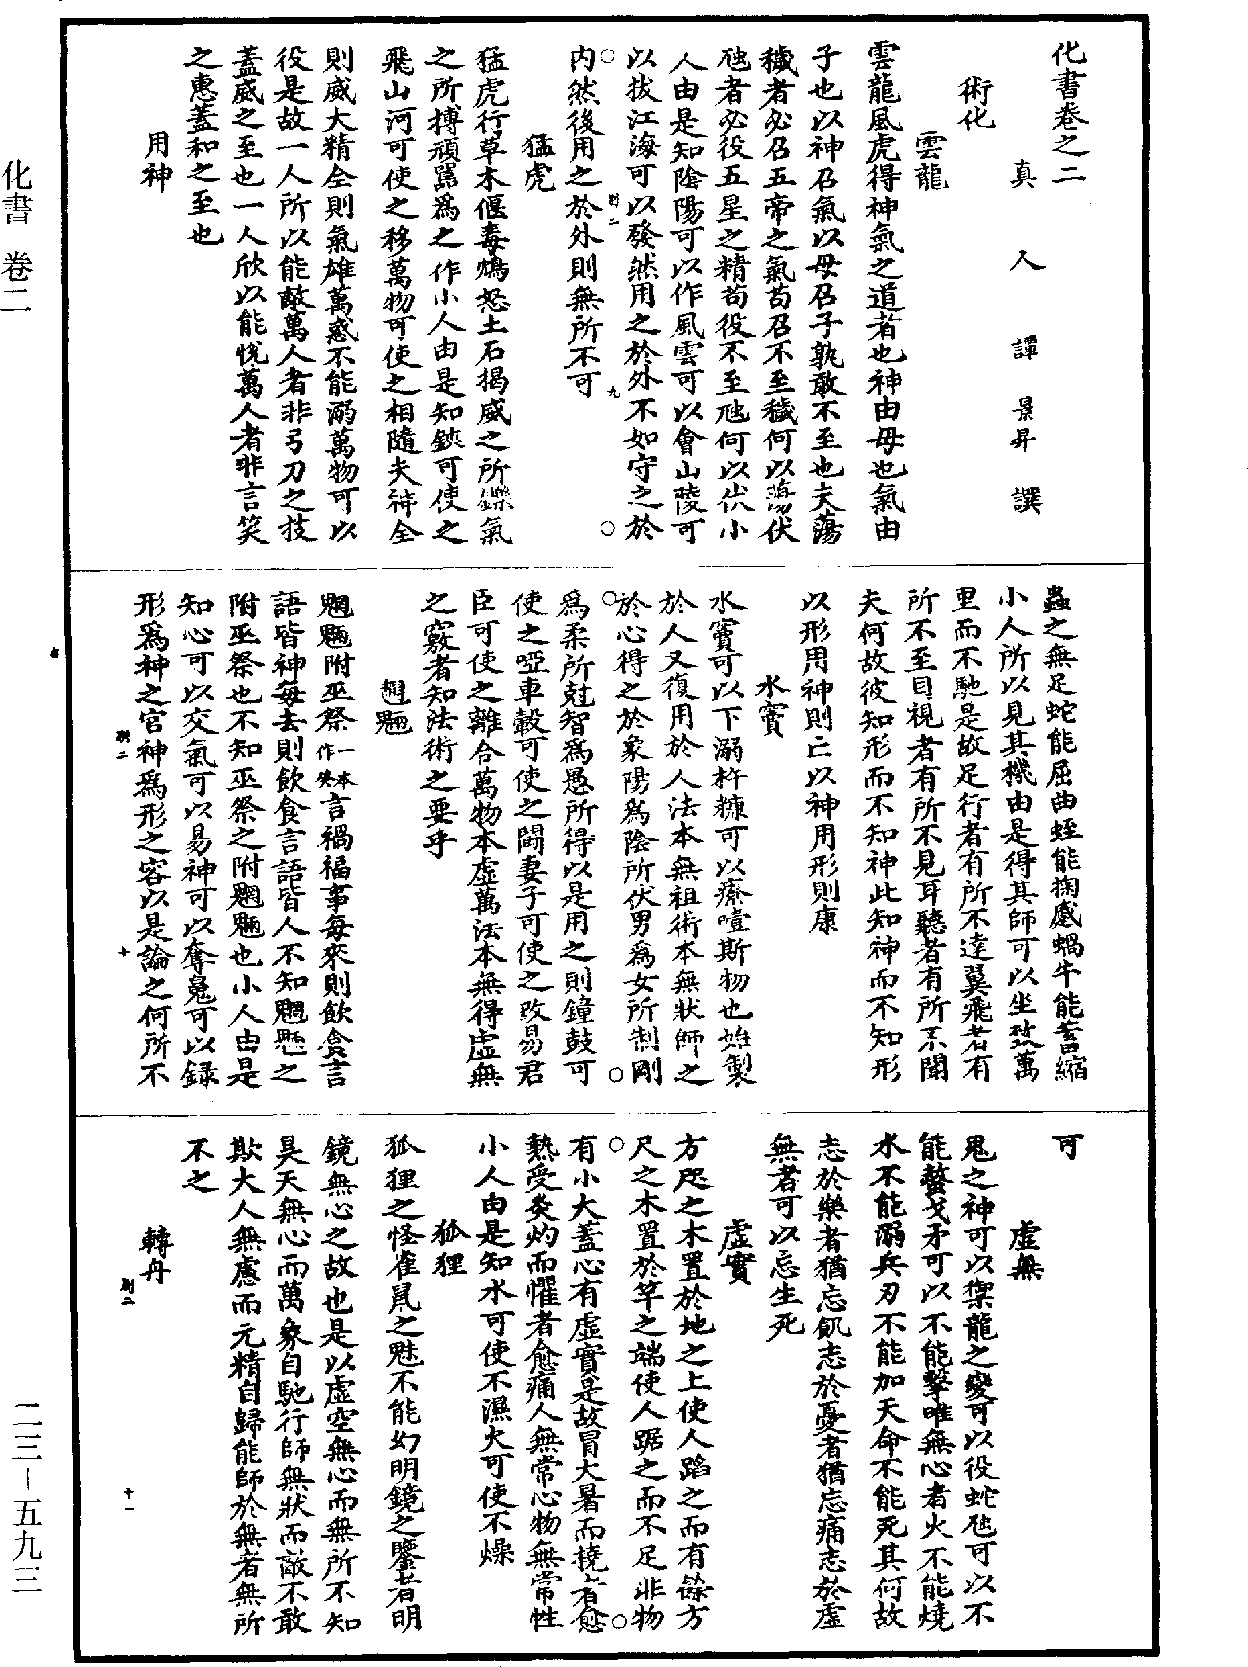 化書卷之二
真人譚景昇撰
術化
雲龍
雲龍風虎得神氣之道者也神由母也氣由
子也以神召氣以母召子孰敢不至也夫蕩
穢者必召五帝之氣苟召不至穢何以蕩伏
虺者必役五星之精苟役不至虺何以伏小
人由是知陰陽可以作風雲可以會山陵可
以拔江海可以發然用之於外不如守之於
內然後用之於外則無所不可
猛虎
猛虎行草木偃毒鴆怒土石揭威之所鑠氣
之所搏頑嚚為之作小人由是知鋏可使之
飛山河可使之移萬物可使之相隨夫神全
則威大精全則氣雄萬惑不能溺萬物可以
役是故一人所以能敵萬人者非弓刀之技
蓋威之至也一人欣以能悅萬人者非言笑
之惠蓋和之至也
用神
蟲之無足蛇能屈曲蛭能掬蹙蝸牛能蓄縮
小人所以見其機由是得其師可以坐致萬
里而不馳是故足行者有所不達翼飛者有
所不至目視者有所不見耳聽者有所不聞
夫何故彼知形而不知神此知神而不知形
以形用神則亡以神用形則康
水竇
水竇可以下溺杵糠可以療噎斯物也始製
於人又復用於人法本無祖術本無狀師之
於心得之於象陽為陰所伏男為女所制剛
為柔所尅智為愚所得以是用之則鐘鼓可
使之啞車轂可使之鬬妻子可使之改易君
臣可使之離合萬物本虛萬法本無得虛無
之竅者知法術之要乎
魍魎
魍魎附巫祭一本作祭言禍福事每來則飲食言
語皆神每去則飲食言語皆人不知魍魎之
附巫祭也不知巫祭之附魍魎也小人由是
知心可以交氣可以易神可以奪鬼可以錄
形為神之宮神為形之容以是論之何所不
可
虛無
鬼之神可以禦龍之變可以役蛇虺可以不
能螫戈矛可以不能擊唯無心者火不能燒
水不能溺兵刃不能加天命不能死其何故
志於樂者猶忘飢志於憂者猶忘痛志於虛
無者可以忘生死
虛實
方咫之木置於地之上使人蹈之而有餘方
尺之木置於竿之端使人踞之而不足非物
有小大蓋心有虛實是故冒大暑而撓者愈
熱受炙灼而懼者愈痛人無常心物無常性
小人由是知水可使不濕火可使不燥
狐狸
狐狸之怪雀鼠之魅不能幻明鏡之鑒者明
鏡無心之故也是以虛空無心而無所不知
昊天無心而萬象自馳行師無狀而敵不敢
欺大人無慮而元精自歸能師於無者無所
不之
轉舟
化書 卷二
二三—五九三